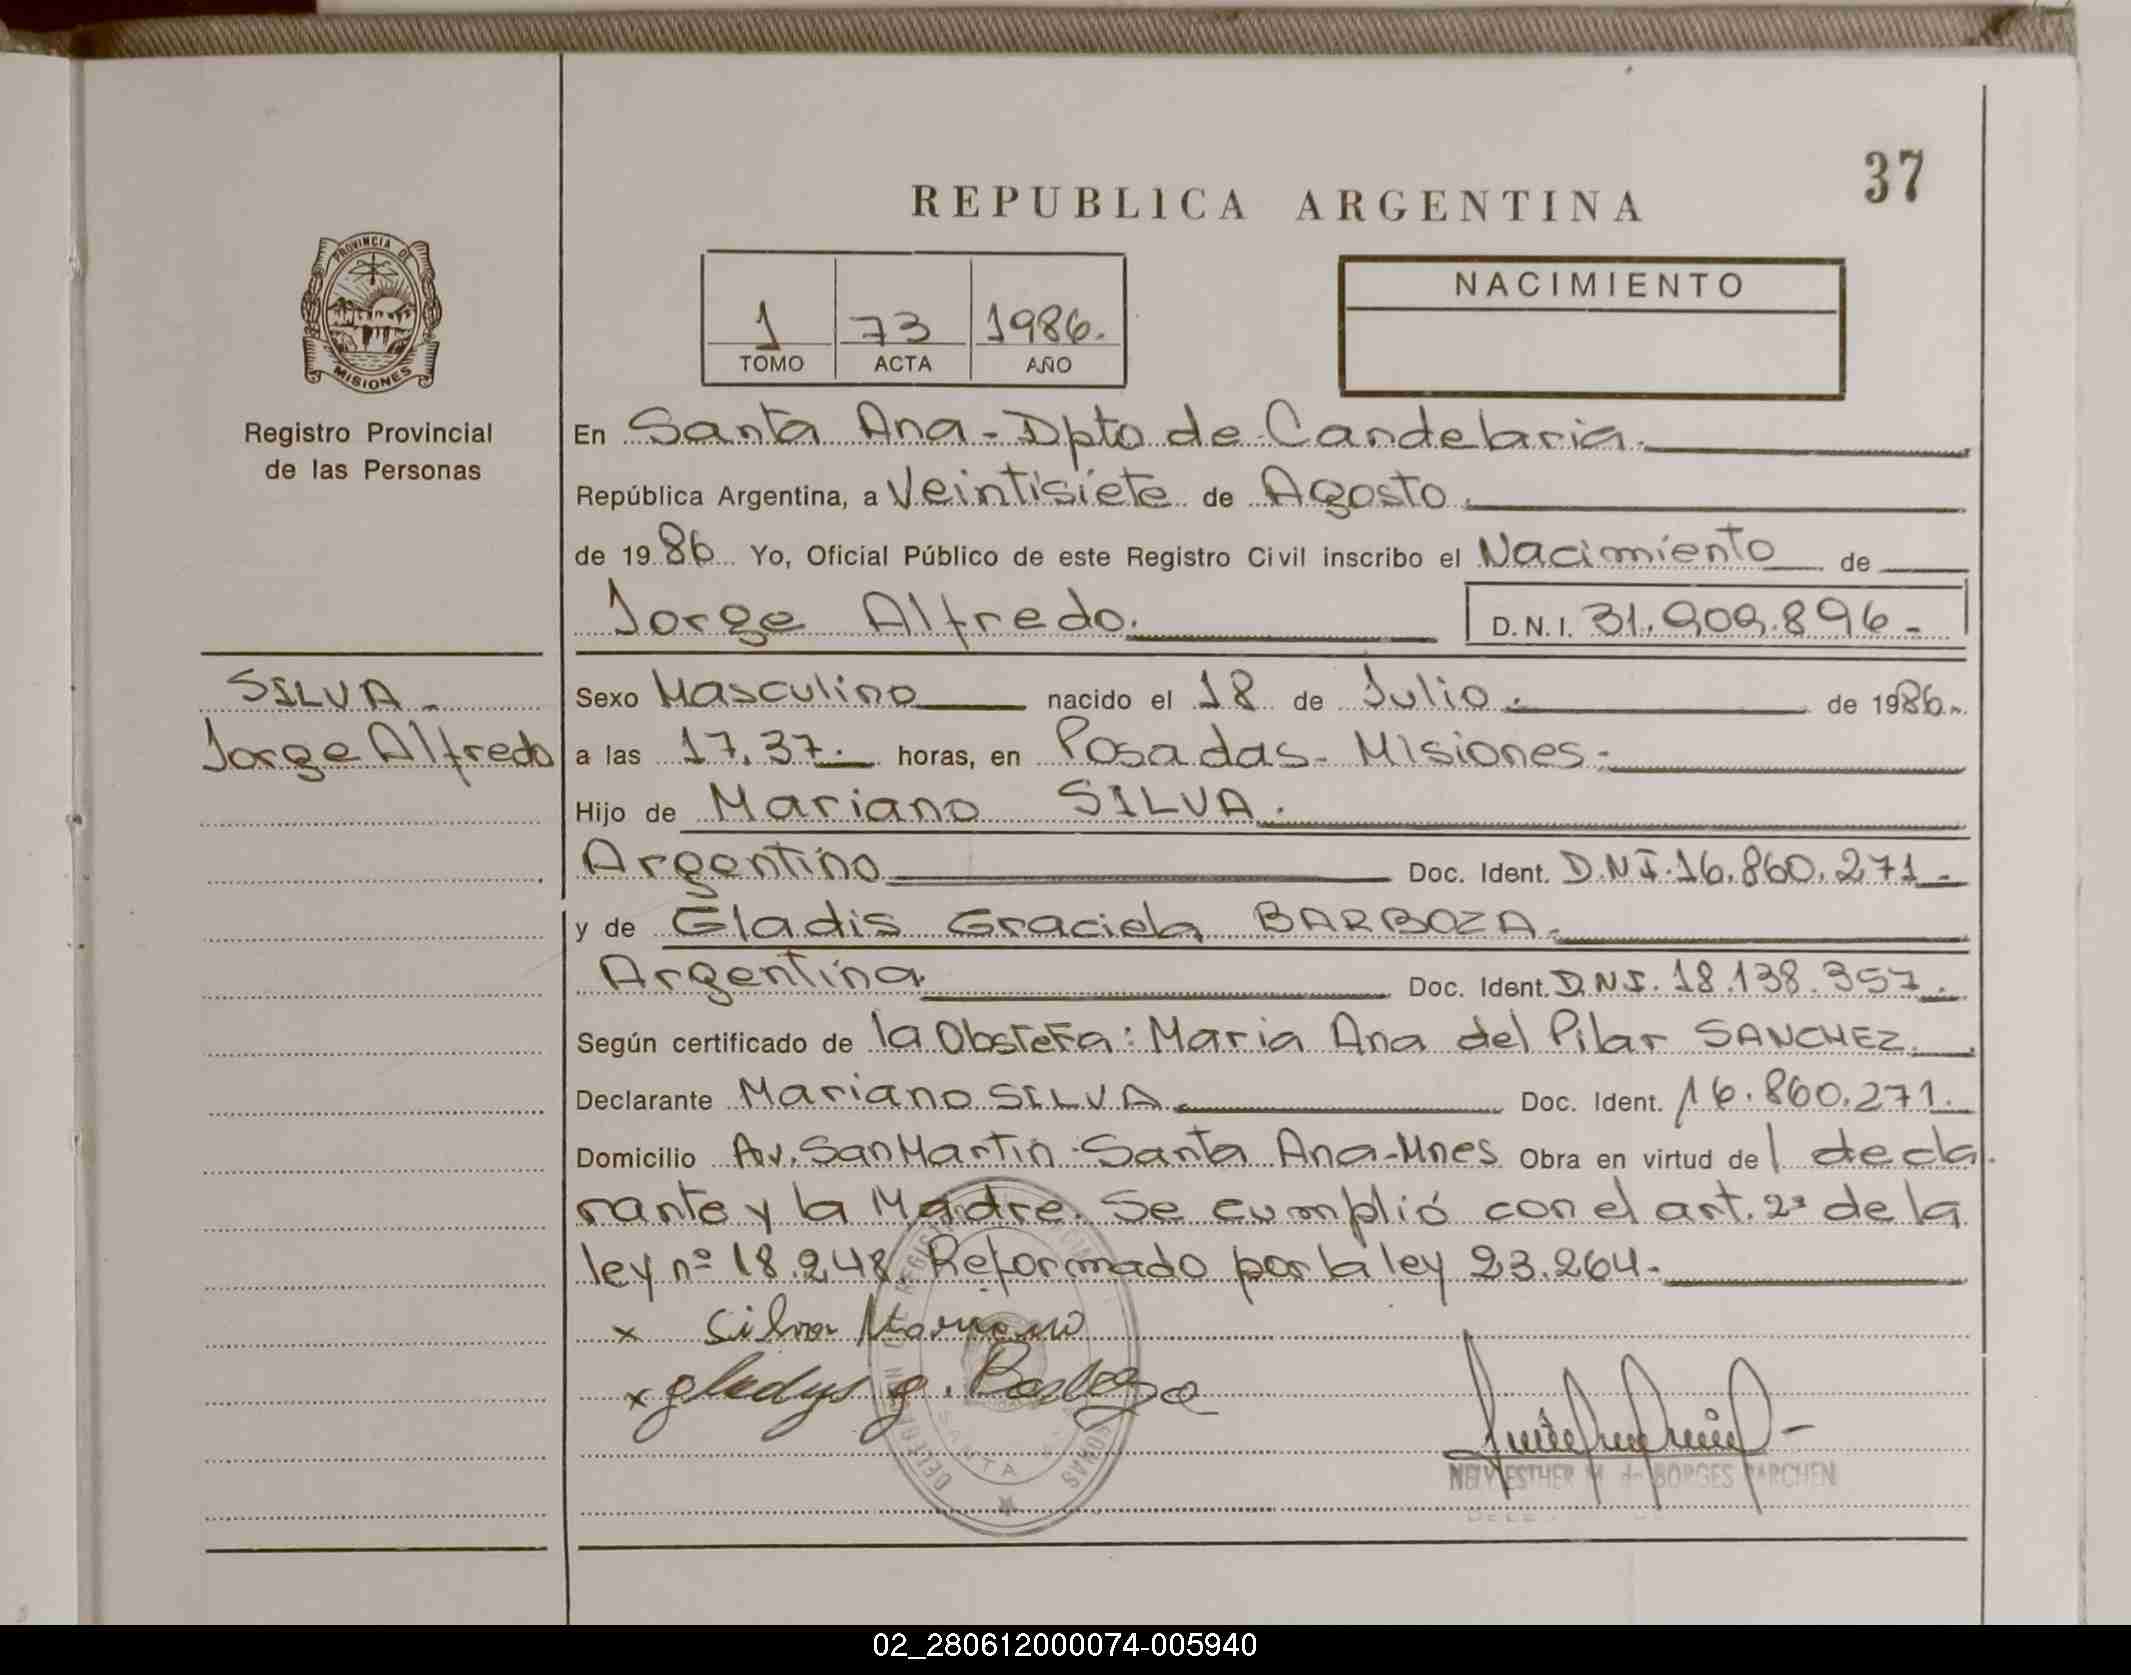 37
REPUBLICA ARGENTINA
PROVINCIA DE
MISIONES
Registro Provincial
de las Personas
1 73 1986.
TOMO ACTA AÑO
NACIMIENTO
En Santa Ana - Dpto de Candelaria.
República Argentina, a Veintisiete de Agosto.
de 1986 Yo, Oficial Público de este Registro Civil inscribo el Nacimiento de
Jorge Alfredo. D.N.I. 31.909.896-
SILVA-
Jorge Alfredo
Sexo Masculino nacido el 18 de Julio. de 1986.
a las 17.37. horas, en Posadas- Misiones-
Hijo de Mariano SILVA.
Argentino Doc. Ident. D.N.I. 16.860.271-
y de Gladis Graciela BARBOZA.
Argentina Doc. Ident. D.N.I. 18.138.357.
Según certificado de la Obstetra: Maria Ana del Pilar SANCHEZ
Declarante Mariano SILVA Doc. Ident. 16.860.271.
Domicilio Av. San Martin-Santa Ana-Mnes Obra en virtud del decla
rante y la Madre. Se cumplió con el art. 2º de la
ley nº 18.248. Reformado por la ley 23.264.
x Silva Mariano
x gladys g. Barboza
SANTA
NELY ESTHER M. de BORGES PARCHEN
02_280612000074-005940